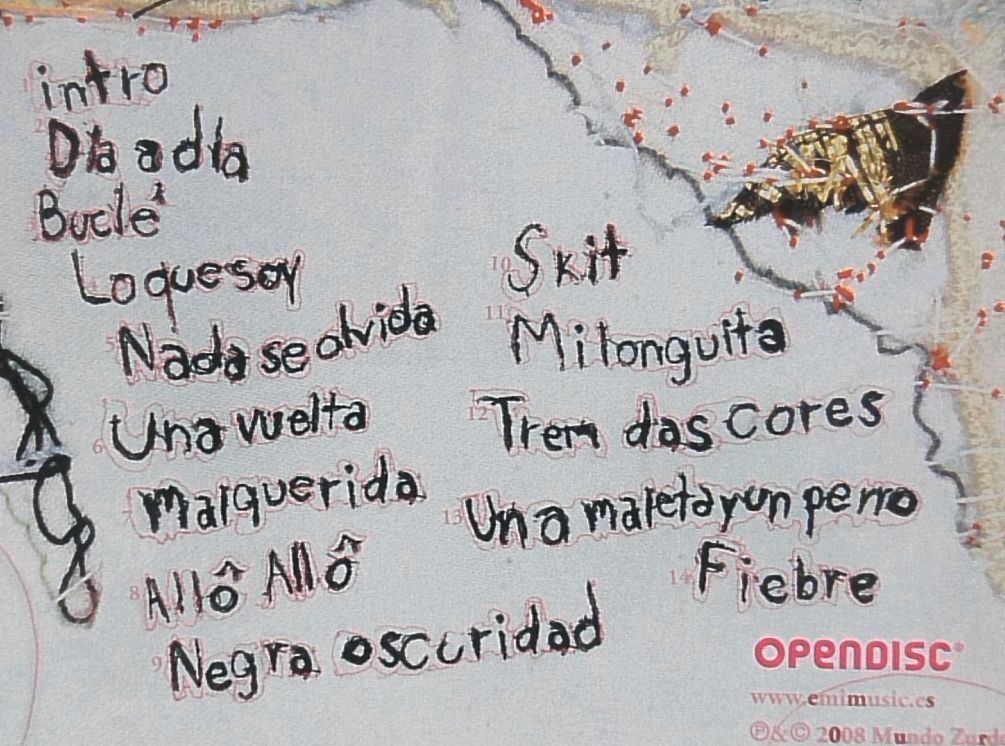 1 intro
2 Día a día
Buclé
Lo que soy
5 Nada se olvida
6 Una vuelta
7 Malquerida
8 Allô Allô
9 Negra oscuridad
10 Skit
11 Milonguita
12 Trem das cores
13 Una maleta y un perro
14 Fiebre
OPENDISC®
www.emimusic.es
℗&© 2008 Mundo Zurd